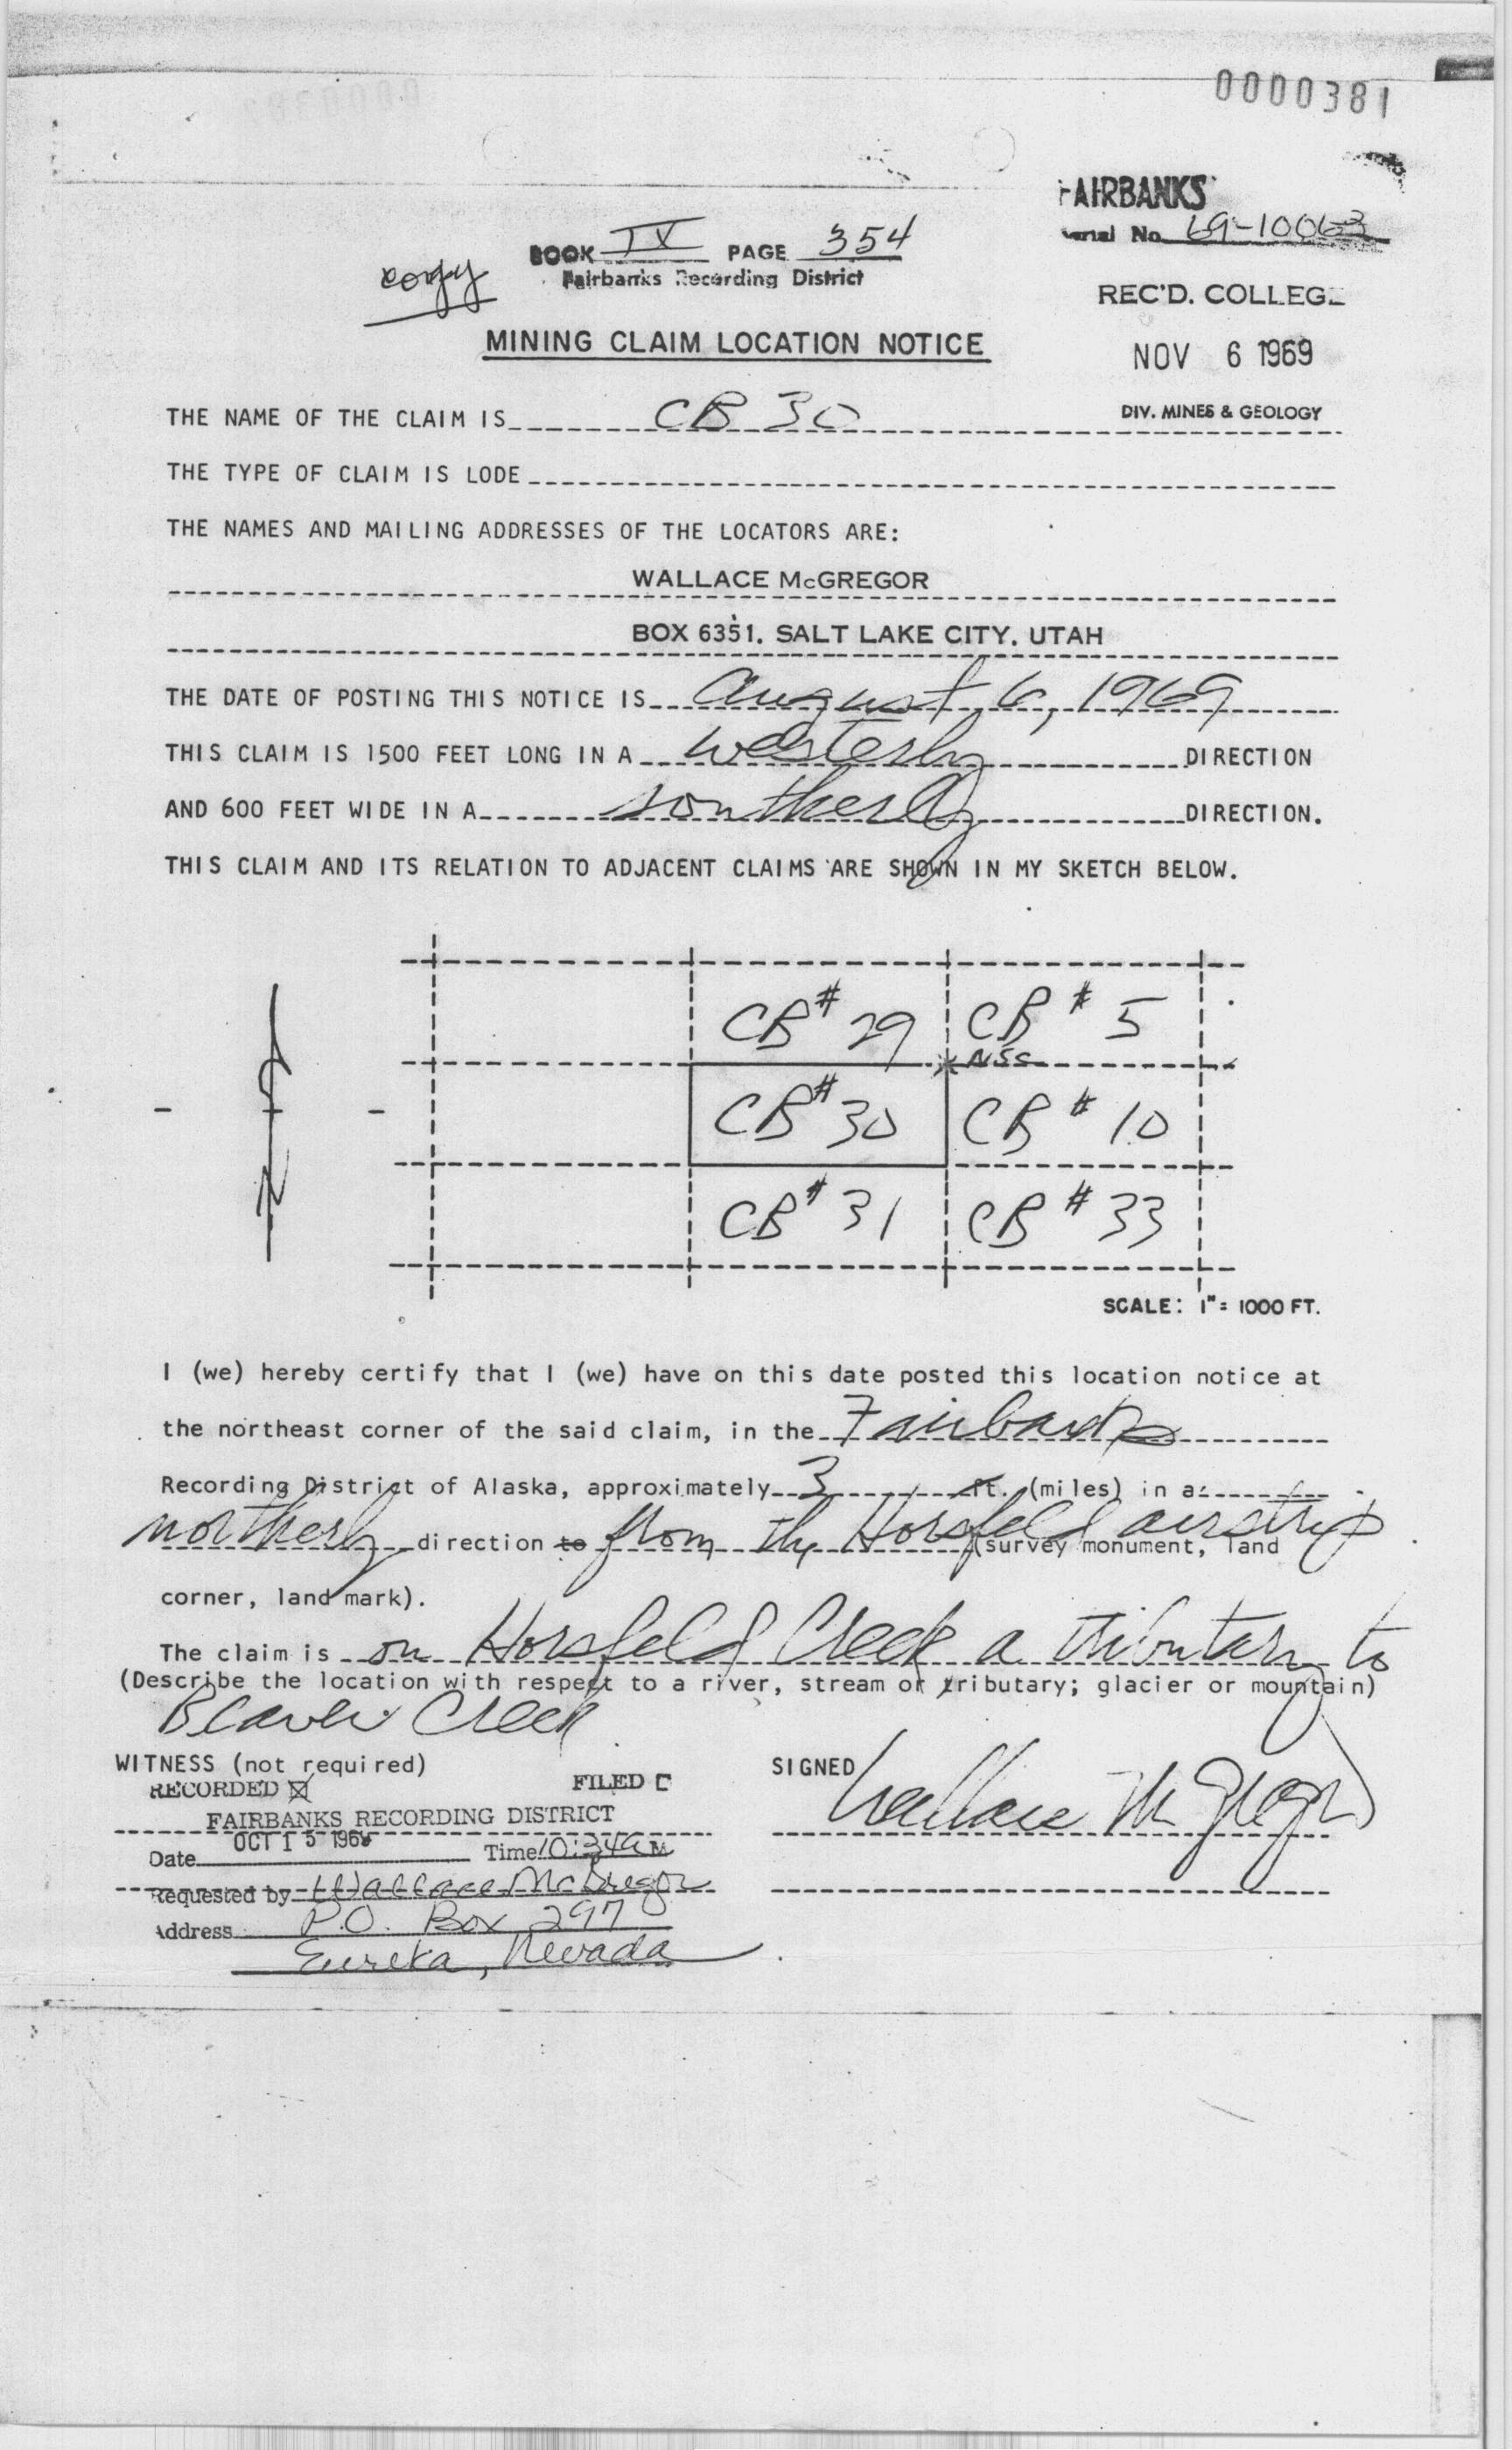 0000381
FAIRBANKS
Serial No. 69-10063
BOOK IV PAGE 354
Fairbanks Recording District
copy
REC'D. COLLEGE
MINING CLAIM LOCATION NOTICE
NOV 6 1969
DIV. MINES & GEOLOGY
THE NAME OF THE CLAIM IS CB 30
THE TYPE OF CLAIM IS LODE
THE NAMES AND MAILING ADDRESSES OF THE LOCATORS ARE:
WALLACE McGREGOR
BOX 6351. SALT LAKE CITY. UTAH
THE DATE OF POSTING THIS NOTICE IS August 6, 1969
THIS CLAIM IS 1500 FEET LONG IN A westerly DIRECTION
AND 600 FEET WIDE IN A southerly DIRECTION.
THIS CLAIM AND ITS RELATION TO ADJACENT CLAIMS ARE SHOWN IN MY SKETCH BELOW.
CB # 29 CB # 5
CB # 30 CB # 10
CB # 31 CB # 33
SCALE: 1" = 1000 FT.
I (we) hereby certify that I (we) have on this date posted this location notice at
the northeast corner of the said claim, in the Fairbanks
Recording District of Alaska, approximately 3 ft. (miles) in a
northerly direction to from the Horsfeld airstrip
(survey monument, land
corner, land mark).
The claim is on Horsfeld Creek a tributary to
(Describe the location with respect to a river, stream or tributary; glacier or mountain)
Beaver Creek
WITNESS (not required)
SIGNED Wallace McGregor
RECORDED ☒ FILED
FAIRBANKS RECORDING DISTRICT
Date OCT 15 Time 10:34 A M
Requested by Wallace McGregor
Address P.O. Box 297
Eureka, Nevada